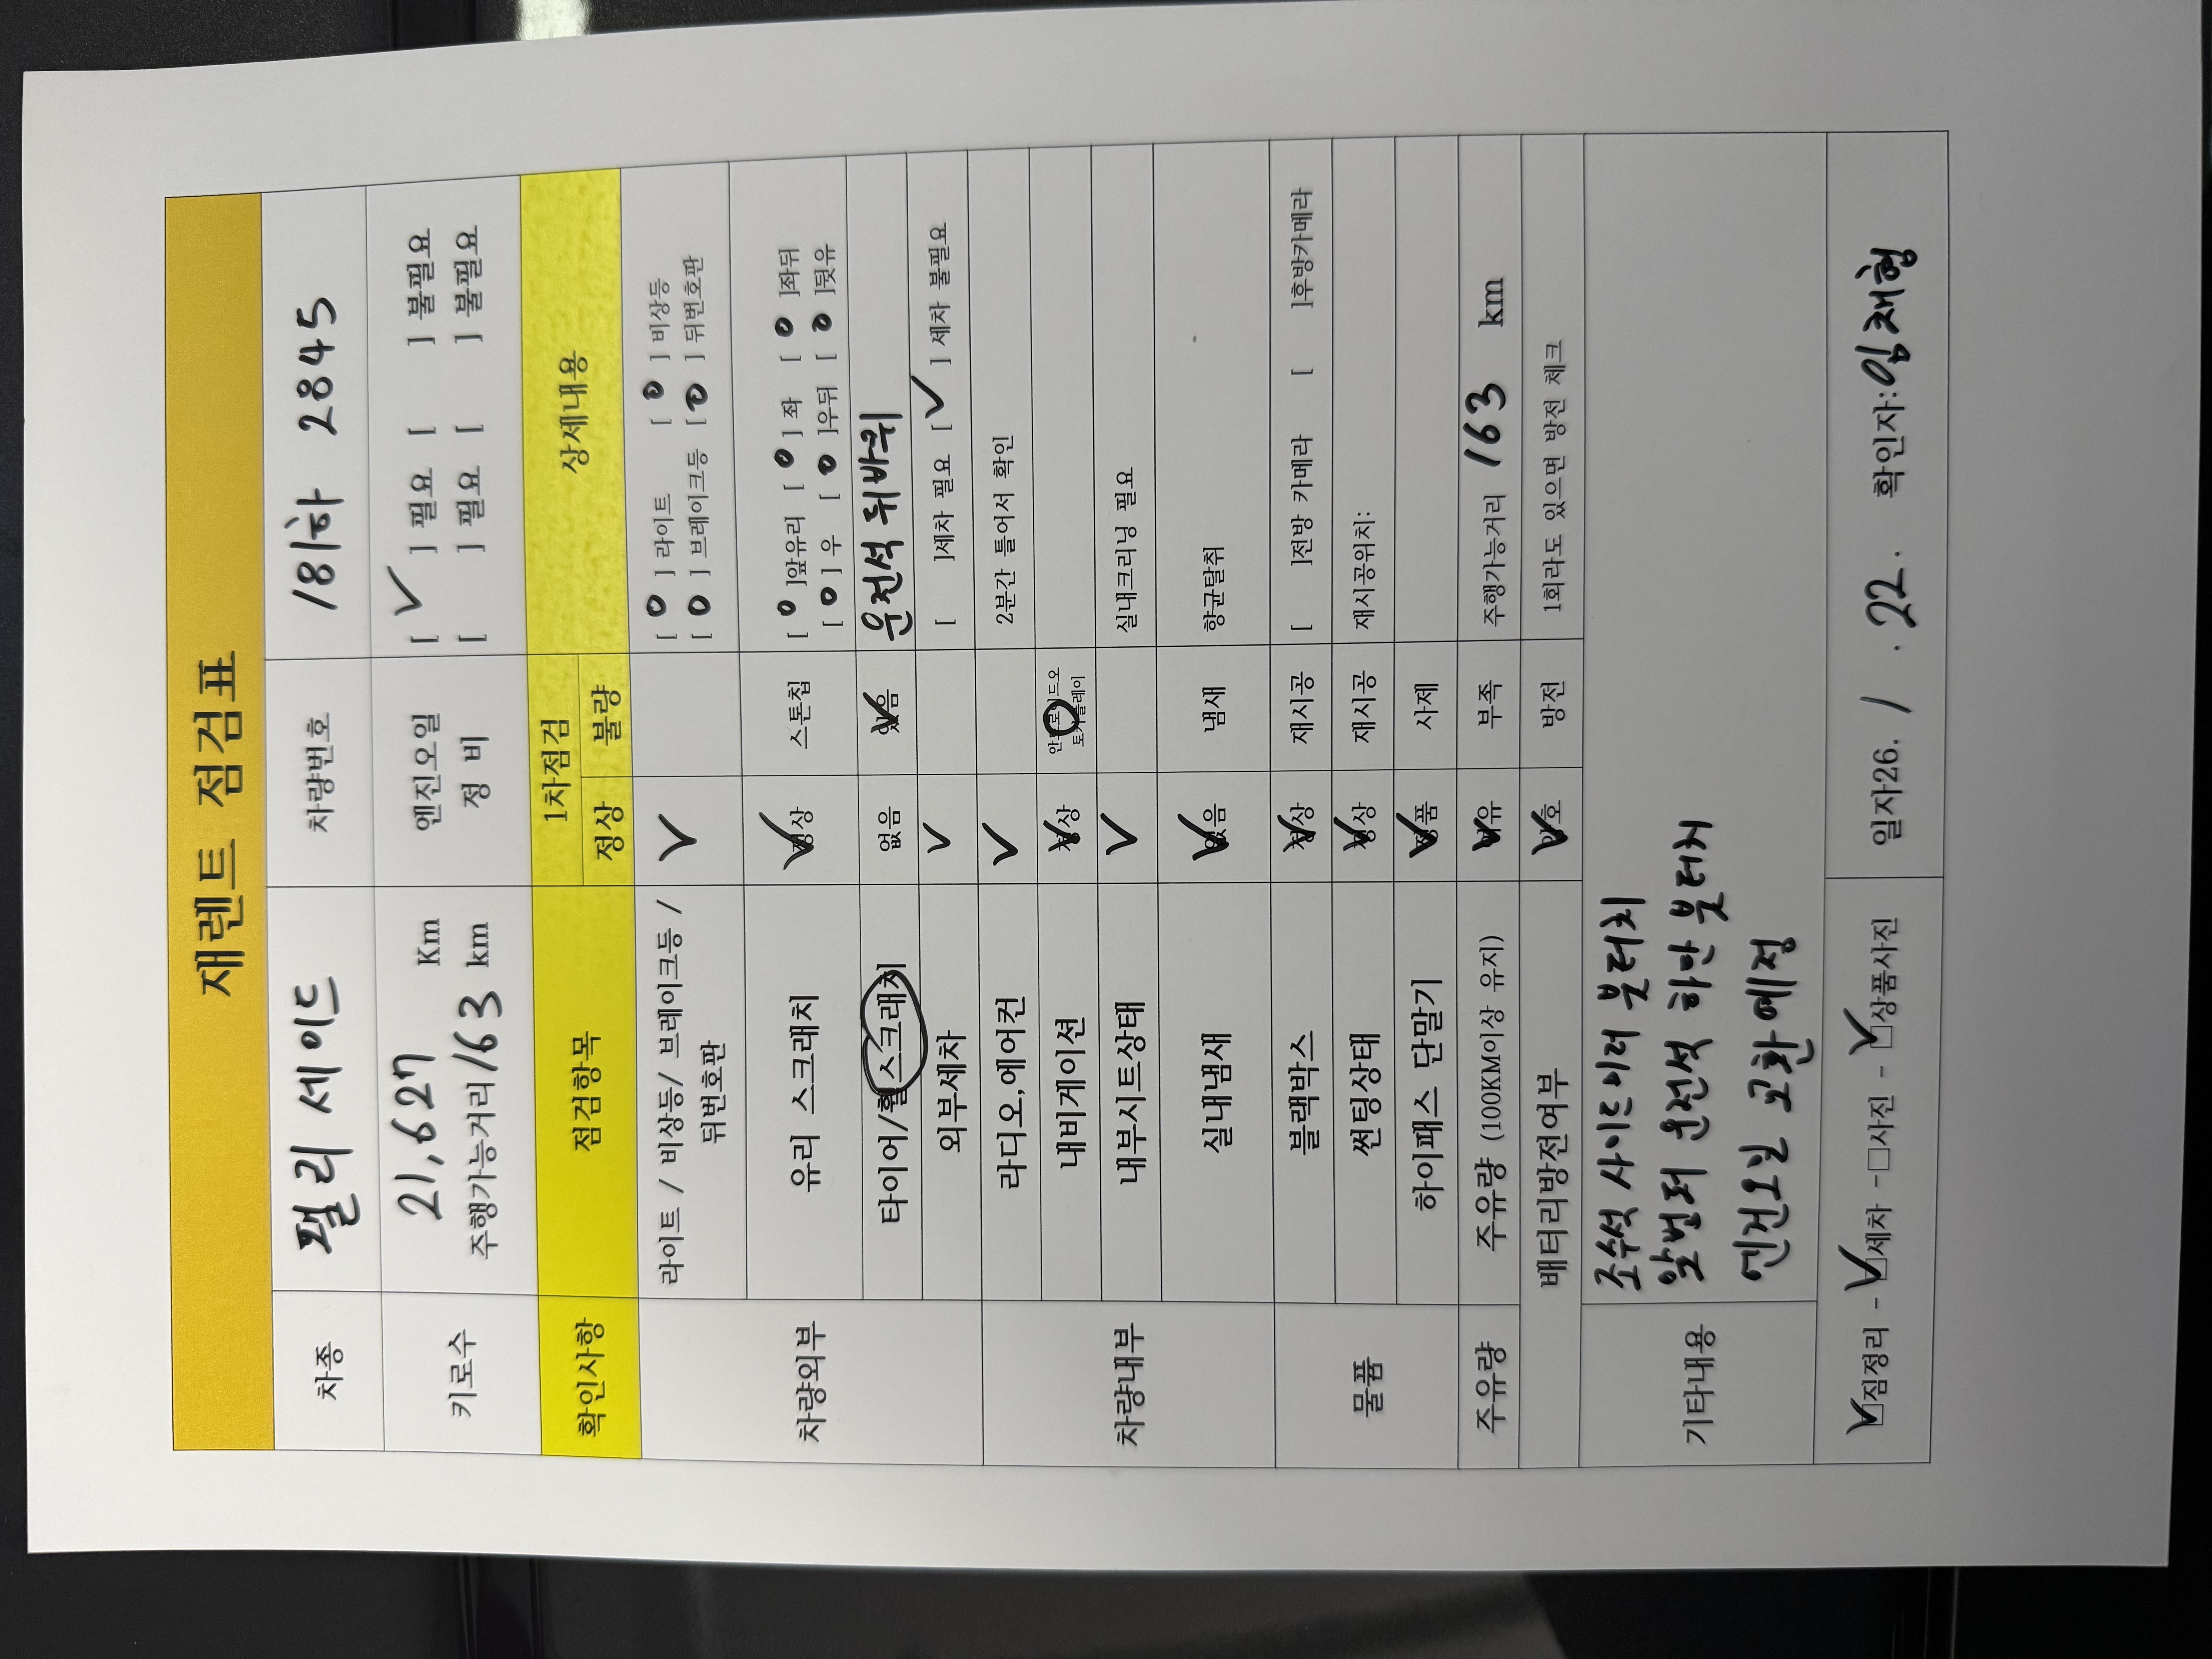 재렌트 점검표
차종 펠리세이드 차량번호 181하 2845
키로수 21,627 Km 엔진오일 [ ✓ ] 필요 [ ] 불필요
주행가능거리 163 km 정 비 [ ] 필요 [ ] 불필요
확인사항 점검항목 1차점검 상세내용
정상 불량
차량외부 라이트 / 비상등/ 브레이크등 / ✓ [ O ] 라이트 [ O ] 비상등
뒤번호판 [ O ] 브레이크등 [ O ] 뒤번호판
유리 스크래치 ✓정상 스톤칩 [ O ]앞유리 [ O ] 좌 [ O ]좌뒤
[ O ] 우 [ O ]우뒤 [ O ]뒷유
타이어/휠 스크래치 없음 ✓있음 운전석 뒤바퀴
외부세차 ✓ [ ]세차 필요 [ ✓ ] 세차 불필요
차량내부 라디오,에어컨 ✓ 2분간 틀어서 확인
내비게이션 ✓정상 안드로이드오
토카플레이
내부시트상태 ✓ 실내크리닝 필요
실내냄새 ✓없음 냄새 향균탈취
물품 블랙박스 ✓정상 재시공 [ ]전방 카메라 [ ]후방카메라
썬팅상태 ✓정상 재시공 재시공위치:
하이패스 단말기 ✓정품 사제
주유량 주유량 (100KM이상 유지) ✓여유 부족 주행가능거리 163 km
배터리방전여부 ✓양호 방전 1회라도 있으면 방전 체크
기타내용 조수석 사이드미러 붓터치
앞범퍼 운전석 하단 붓터치
엔진오일 교환 예정
☑짐정리 - ☑세차 - □사진 - ☑상품사진 일자26. 1 . 22. 확인자:임재형